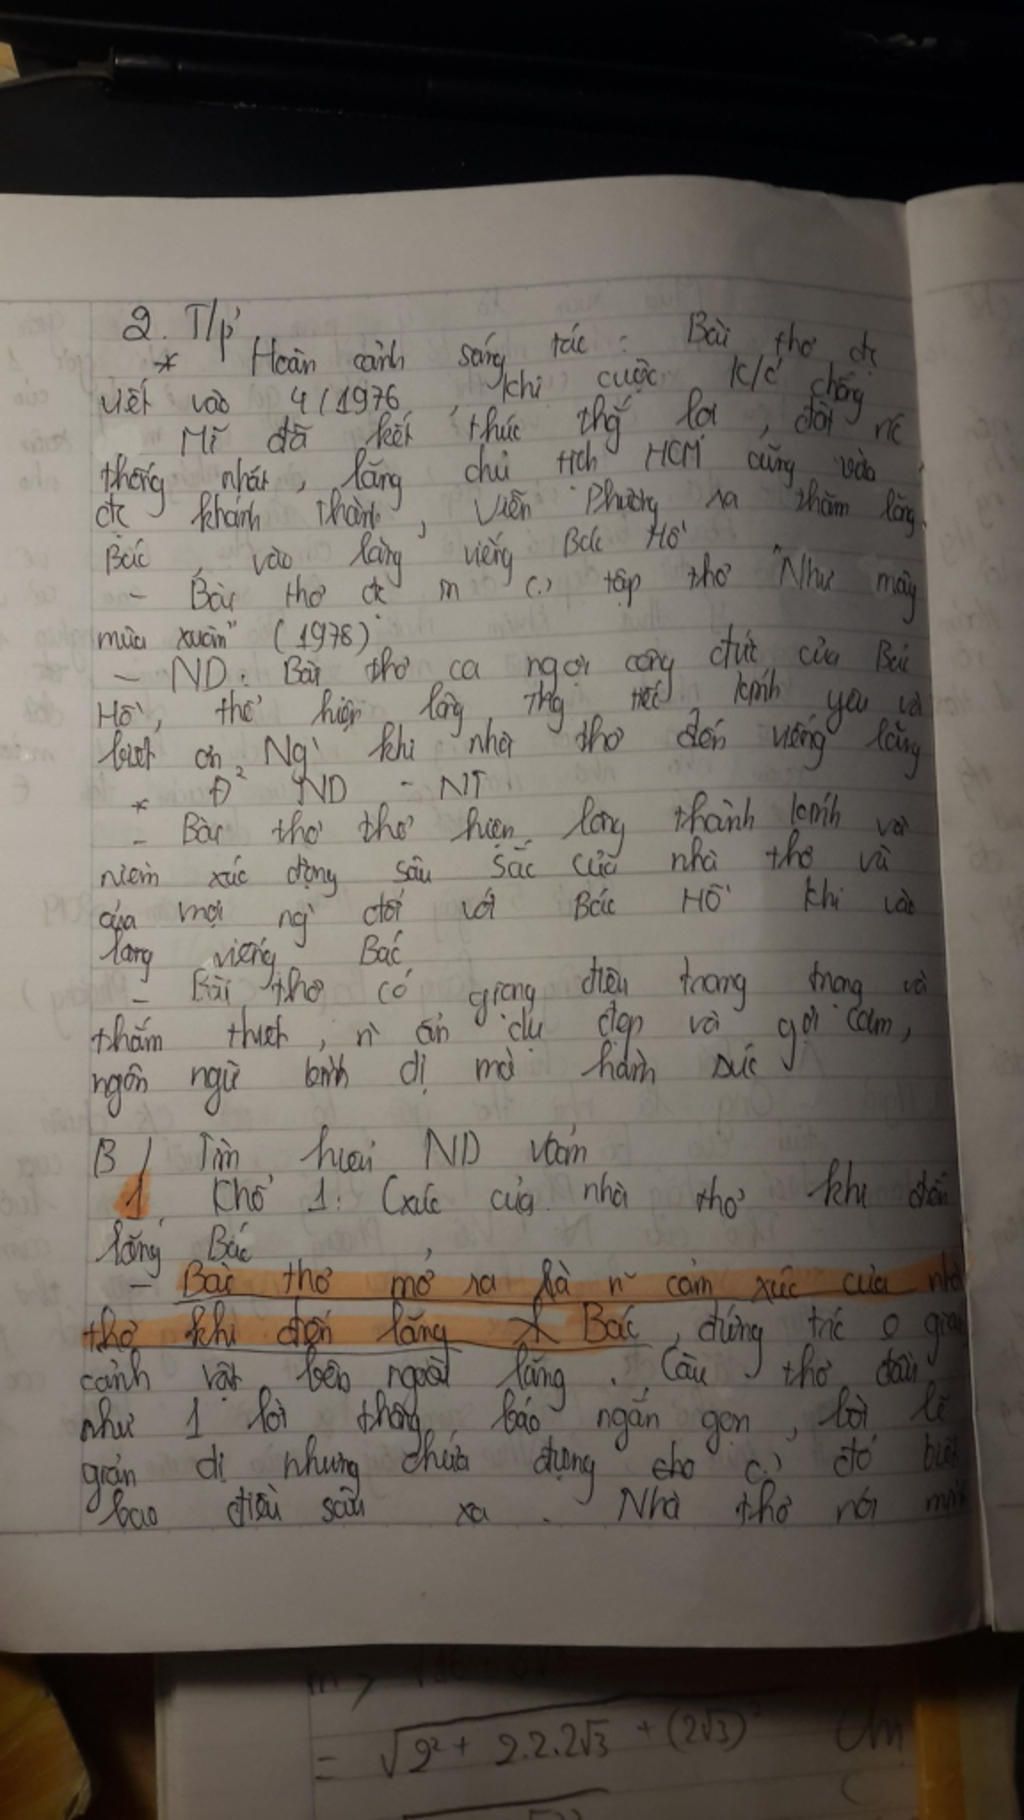 2. T/p'
* Hoàn cảnh sáng tác: Bài thơ đc
viết vào 4/1976 khi cuộc k/c' chống
Mĩ đã kết thúc thắ lợi, đất nc
thống nhất, lăng chủ tịch HCM cũng vào
đc khánh thành, Viễn Phương ra thăm lăng
Bác, vào lăng viếng Bác Hồ
- Bài thơ đc in tập thơ "Như mây
mùa xuân" (1978)
- ND: Bài thơ ca ngợi công đức của Bác
Hồ, thể hiện lòng thg tiếc kính yêu và
biết ơn Ng` khi nhà thơ đến viếng lăng
* Đ² ND - NT
- Bài thơ thơ hiện lòng thành kính và
niềm xúc động sâu sắc của nhà thơ và
của mọi ng` đối với Bác Hồ khi vào
lăng viếng Bác
- Bài thơ có giọng điệu trang trọng và
thắm thiết, n~ ẩn dụ đẹp và gợi cảm,
ngôn ngữ bình dị mà hàm súc
B/ Tìm hiểu ND
1, Khổ 1: Cxúc của nhà thơ khi đến
lăng Bác
- Bài thơ mở ra là n~ cảm xúc của nhà
thơ khi đến lăng Bác, đứng trc o gian
cảnh vật bên ngoài lăng. Câu thơ đầu
như 1 lời thông báo ngắn gọn, lời lẽ
giản dị nhưng chứa đựng cho đó biết
bao điều sâu xa. Nhà thơ nói mình
= √2² + 2.2.2√3 + (2√3)²